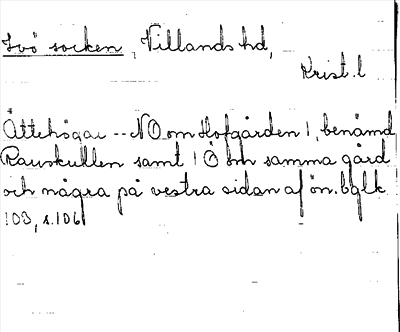 Ivö socken, Villands hd,
Krist. l
Ättehögar -- NO om Hofgården 1, benämd
Ravskullen samt 1 Ö om samma gård
och några på vestra sidan af ön. bglk
103, s. 106